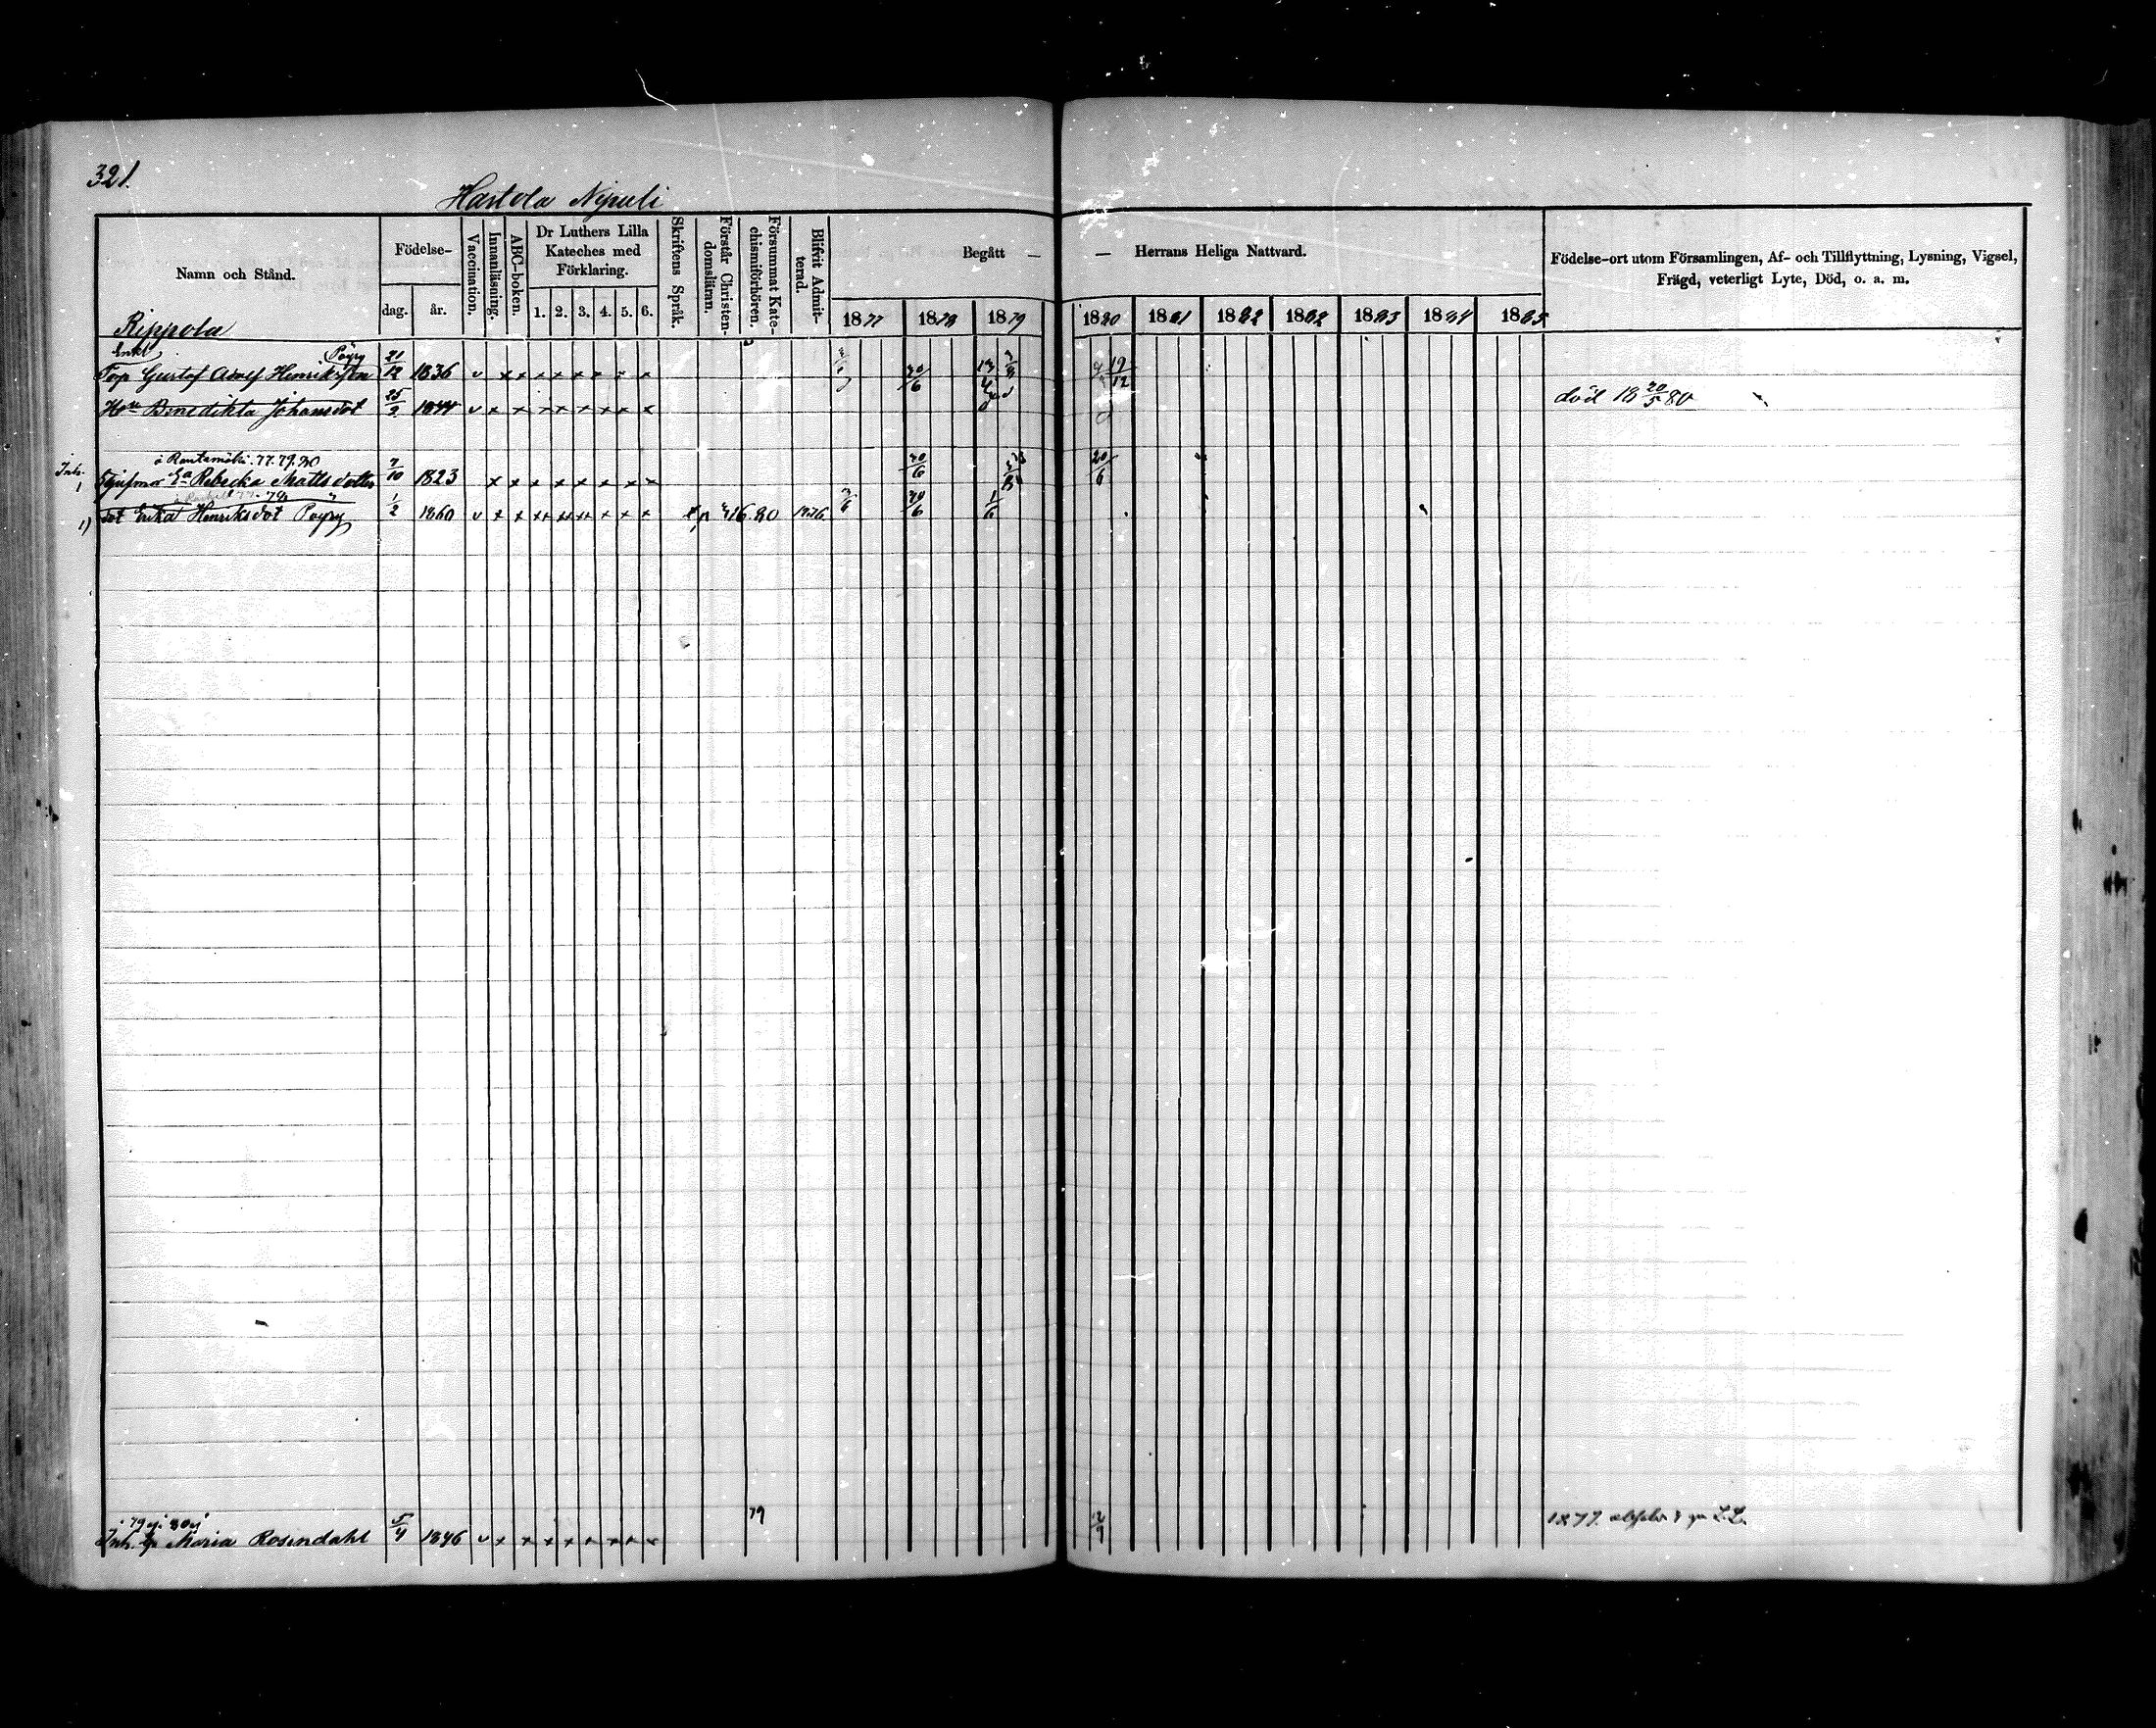 321.
Hartola Nipuli
Namn och Stånd.
Födelse-
dag. år.
Vaccination.
Innanläsning.
ABC-boken.
Dr Luthers Lilla
Kateches med
Förklaring.
1. 2. 3. 4. 5. 6.
Skriftens Språk.
Förstår Christen-
domsläran.
Försummat Kate-
chismiförhören.
Blifvit Admit-
terad.
Begått —
— Herrans Heliga Nattvard.
1877 1878 1879 1880 1881 1882 1882 1883 1884 1885
Födelse-ort utom Församlingen, Af- och Tillflyttning, Lysning, Vigsel,
Frägd, veterligt Lyte, Död, o. a. m.
Rippola
Enkl Pöyry
Torp Gustof Adolf Henriksson 21/12 1836 v x x x x x x x x 30/6 19/12
Hu Benedikta Johansdot 25/2 1844 v x x x x x x x x död 18 20/5 80
i Rantamäki 77. 79. 80
Inh. Ea Rebecka Matts dotter 7/10 1823 x x x x x x x x 30/6 20/6
1) dot Erika Henriksdot Pöyry 1/2 1860 v x x x x x x x x 1876 30/6 1/6
79
Inh. Maria Rosendahl 5/4 1846 v x x x x x x x x 12/9 1877